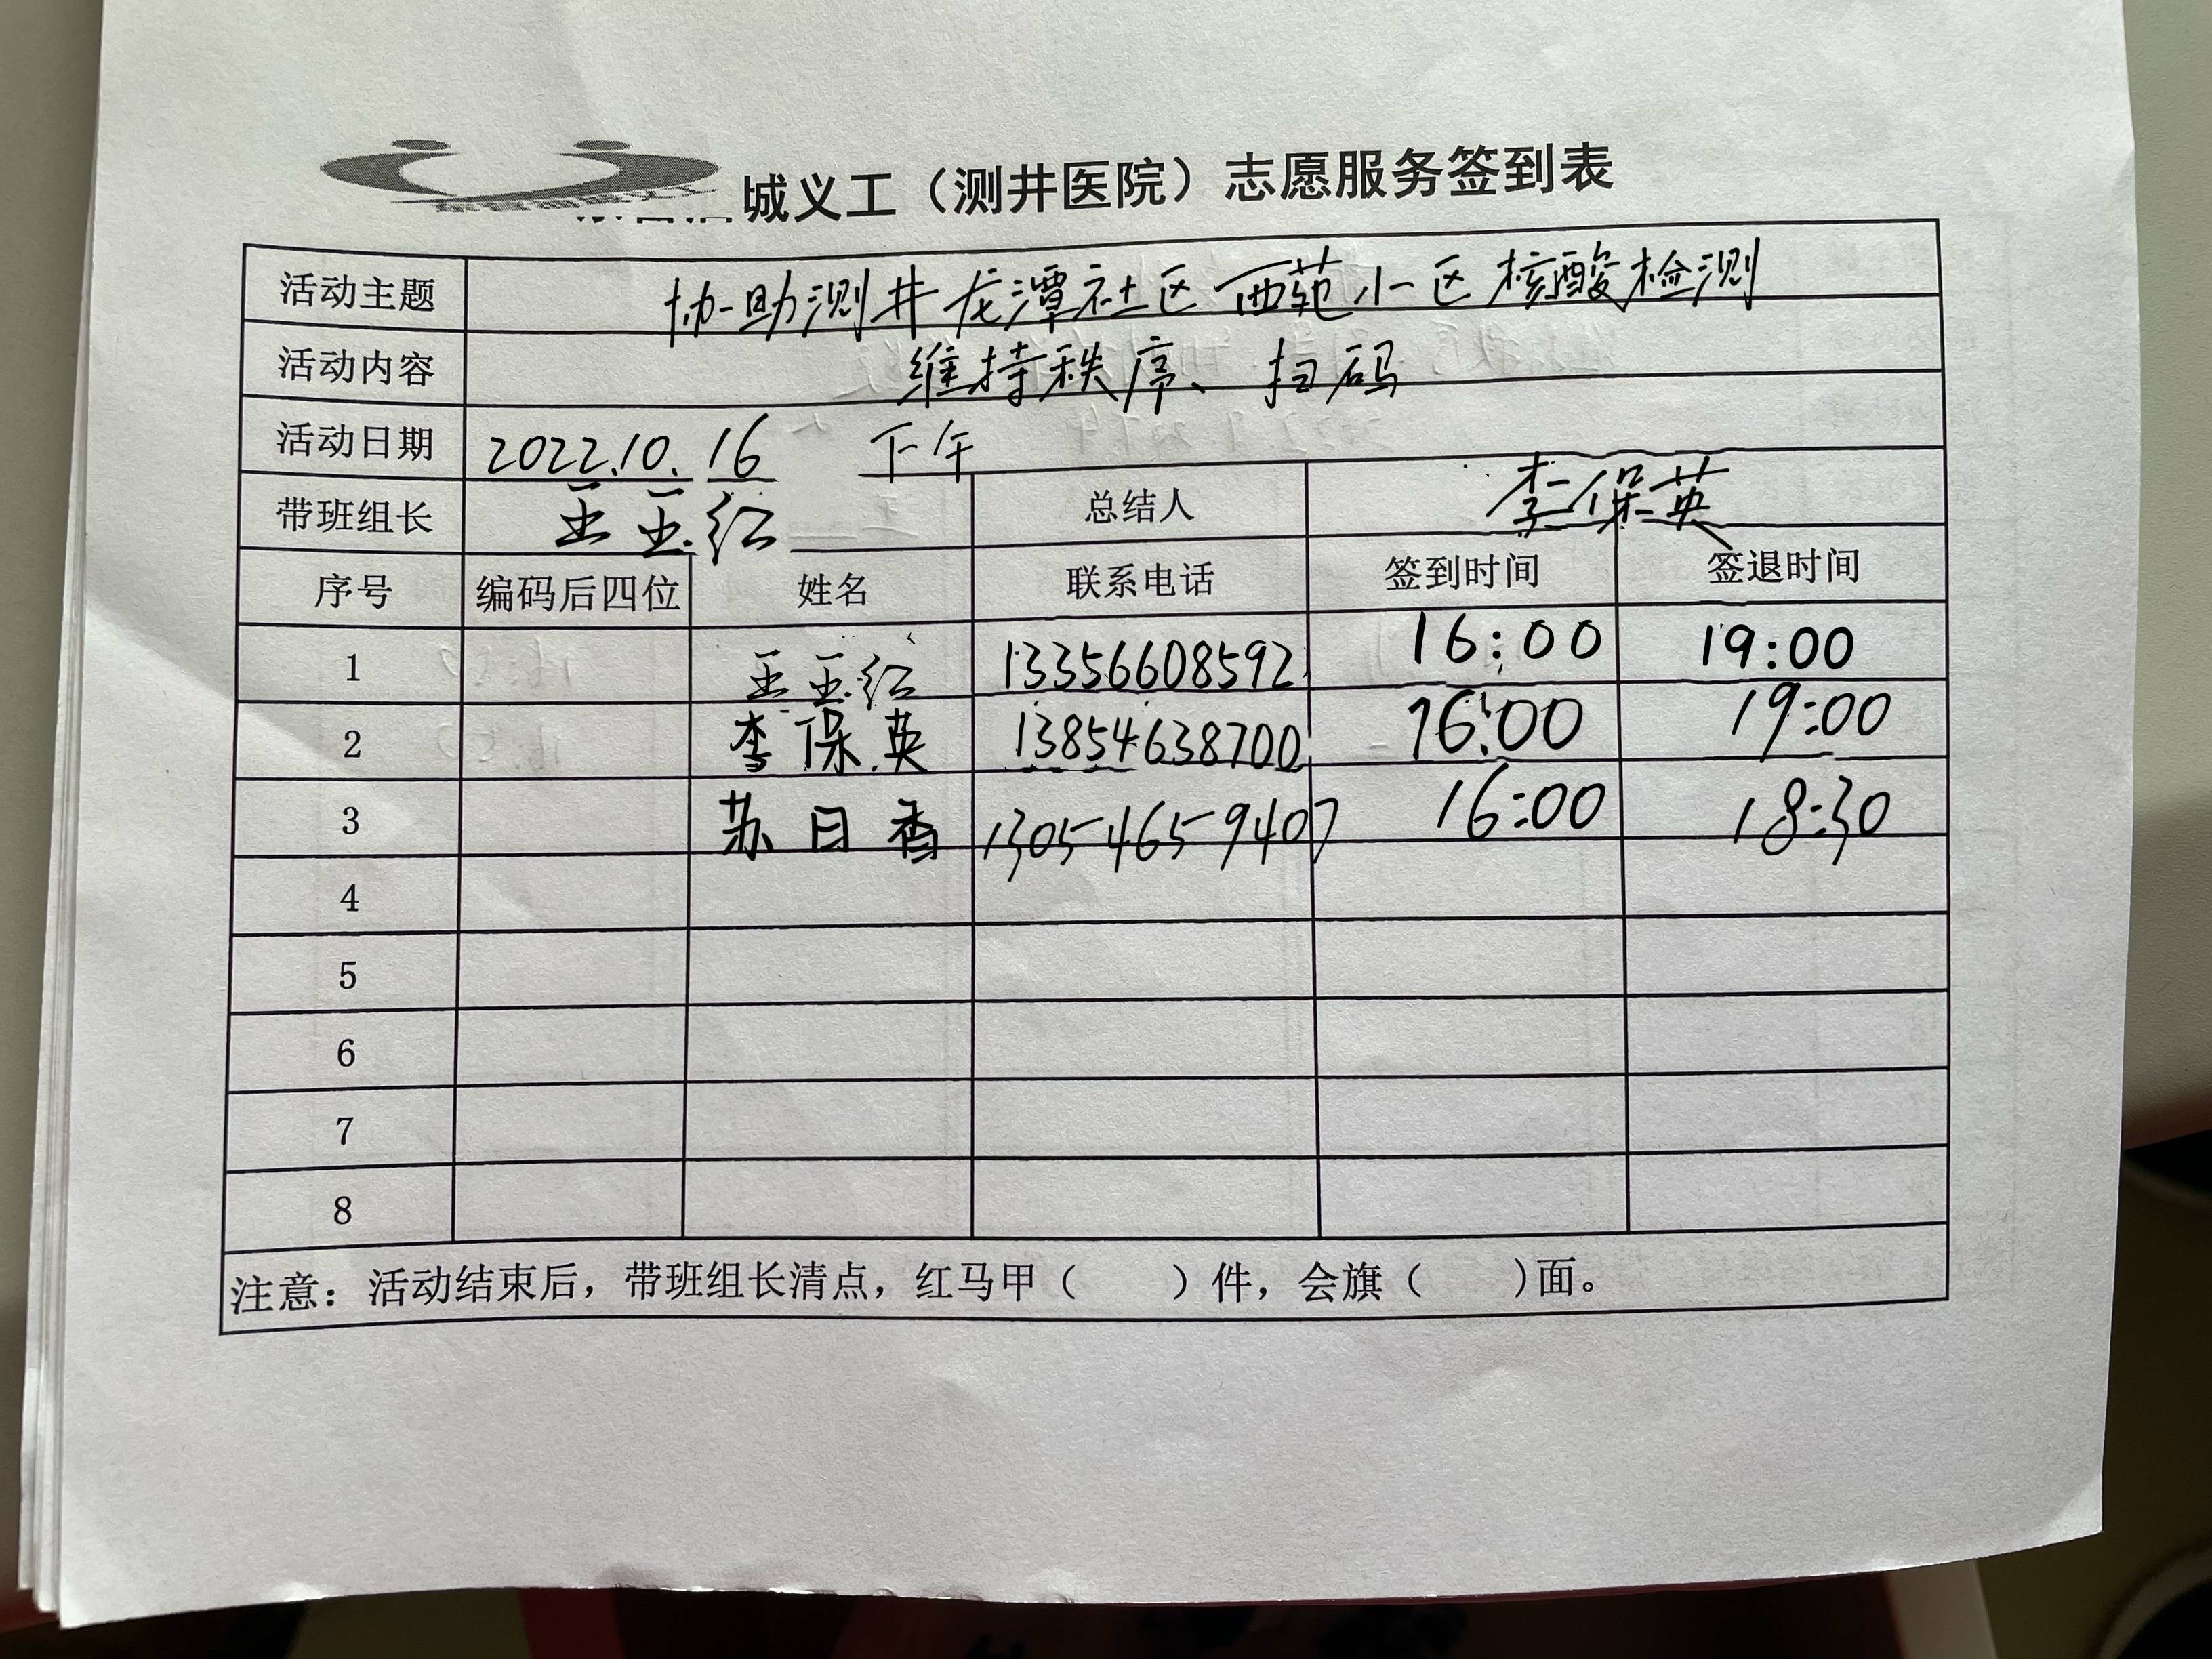 城义工（测井医院）志愿服务签到表
活动主题 协助测井龙潭社区西苑小区核酸检测
活动内容 维持秩序、扫码
活动日期 2022.10.16 下午
带班组长 王玉红 总结人 李保英
序号 编码后四位 姓名 联系电话 签到时间 签退时间
1 王玉红 13356608592 16:00 19:00
2 李保英 13854638700 16:00 19:00
3 苏日香 13054659407 16:00 18:30
4
5
6
7
8
注意：活动结束后，带班组长清点，红马甲（ ）件，会旗（ )面。